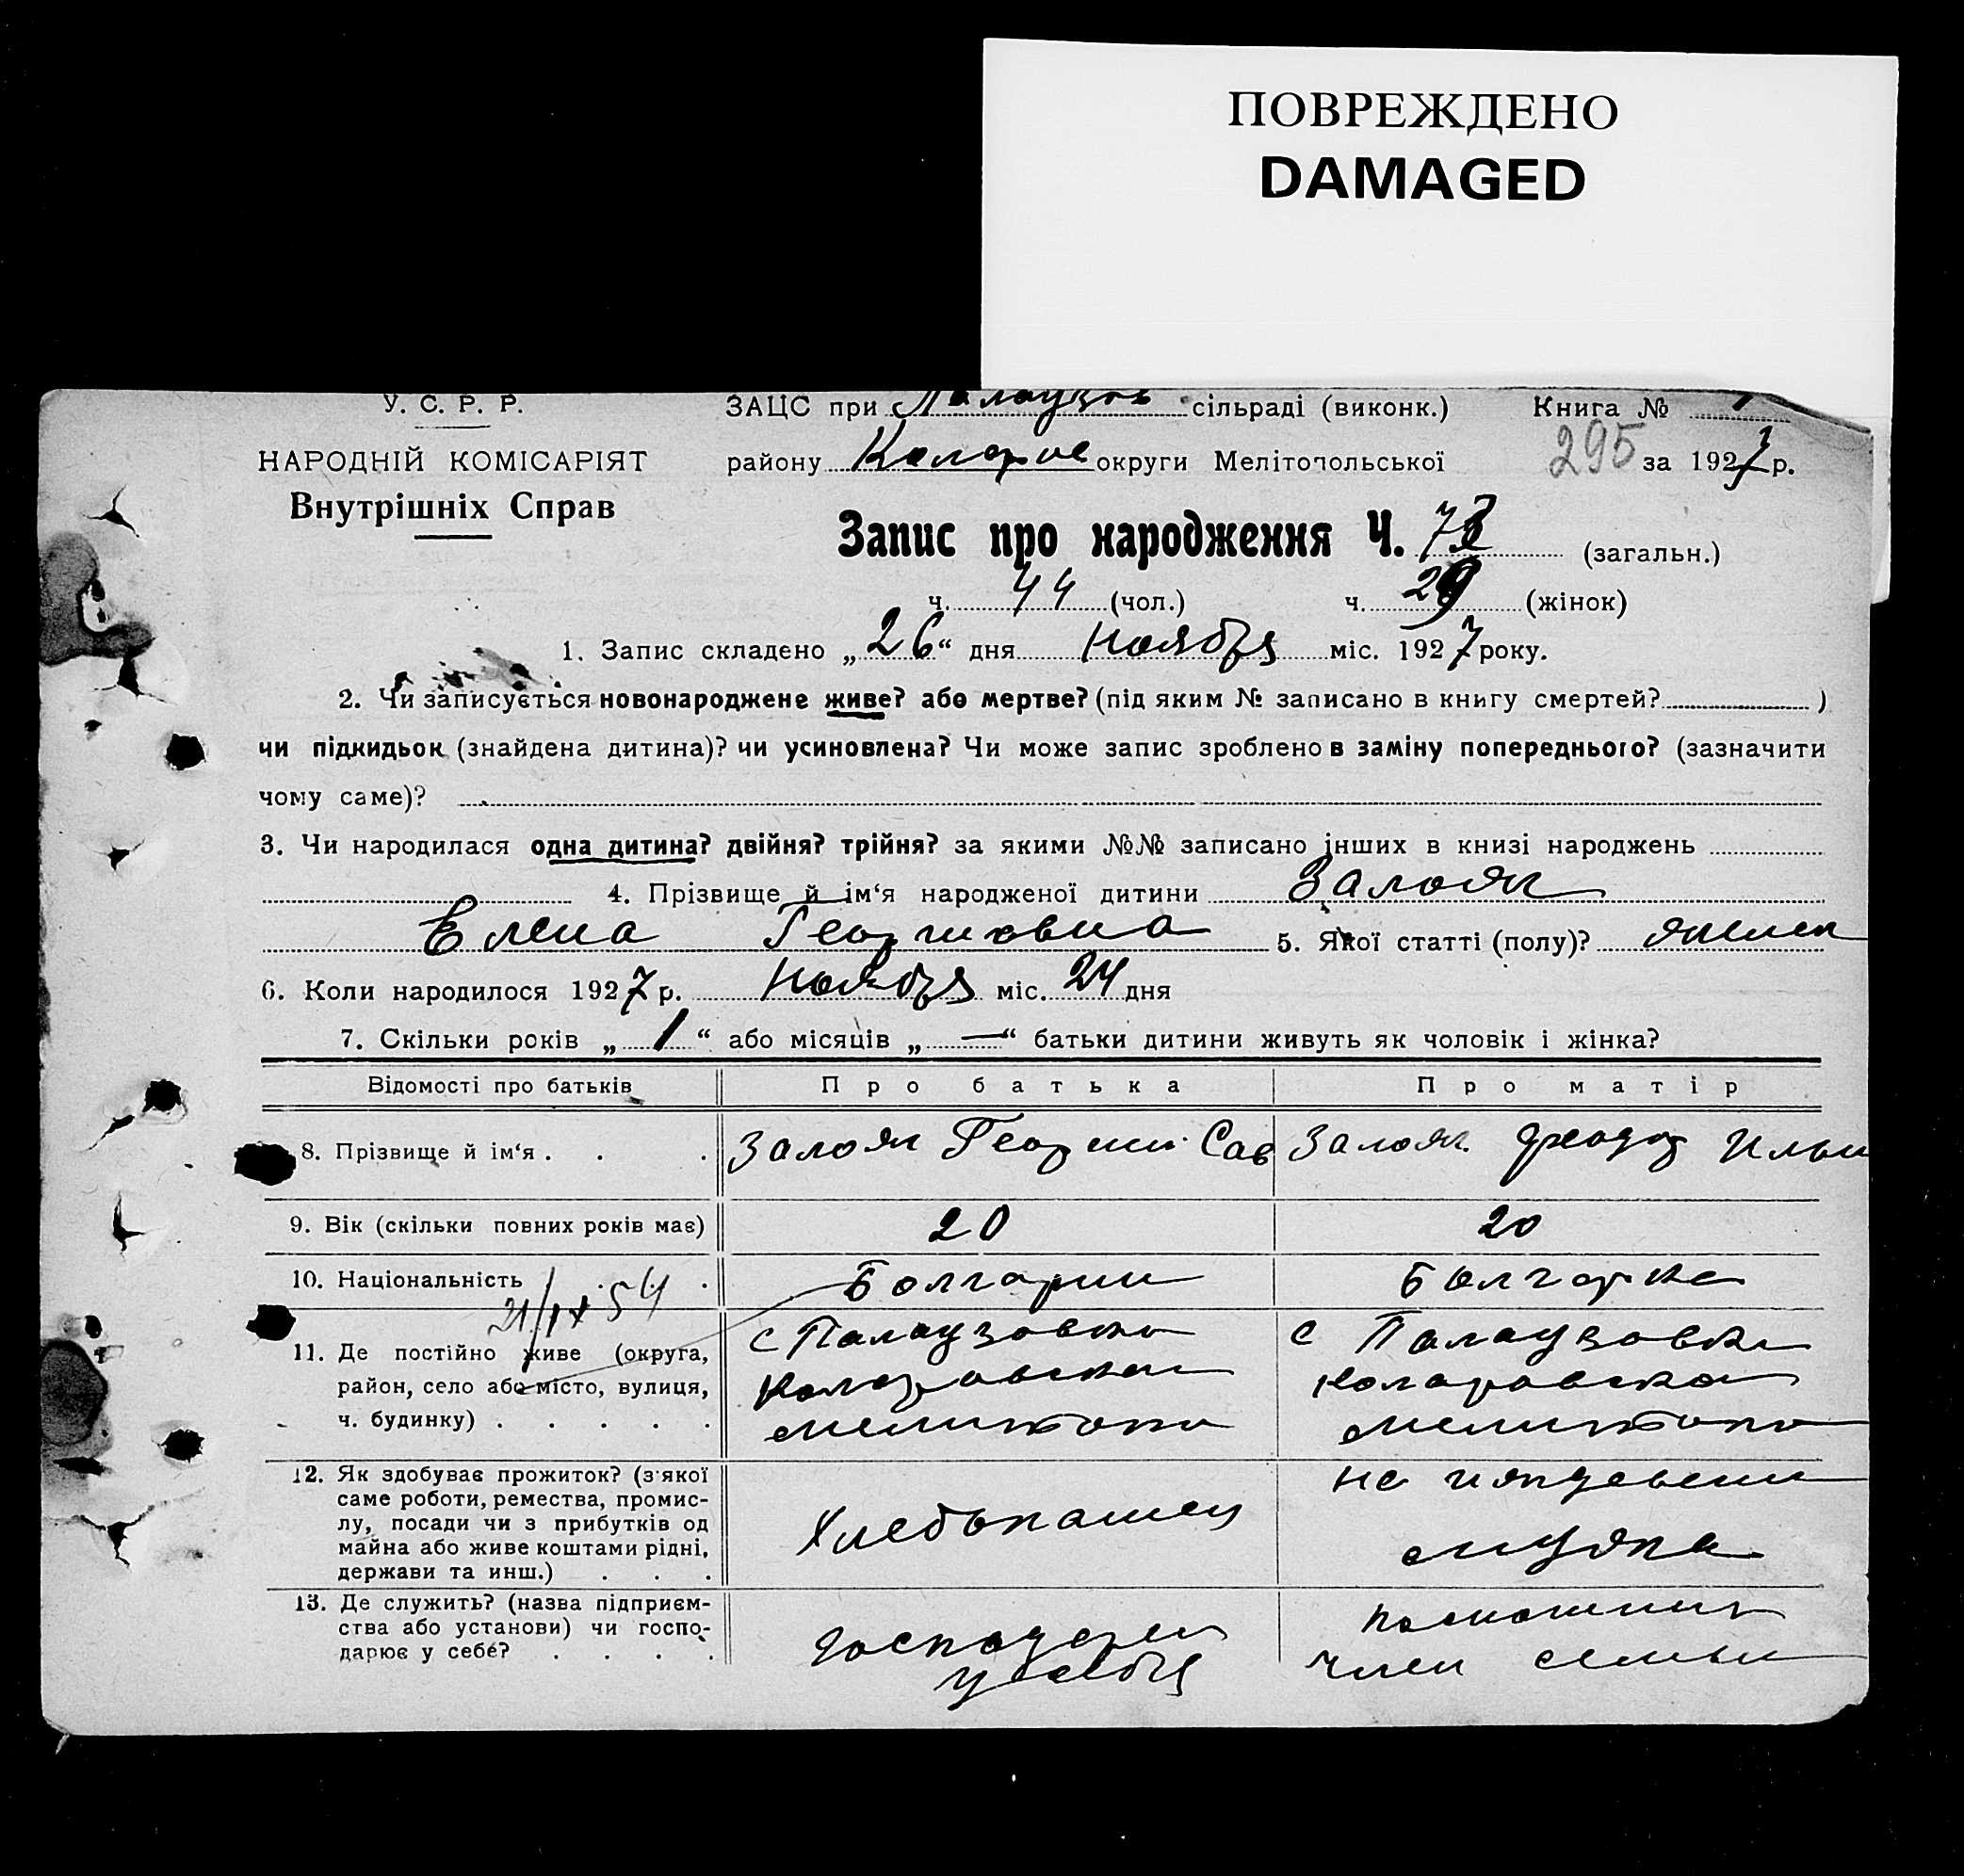 ПОВРЕЖДЕНО
DAMAGED
У. С. Р. Р. ЗАЦС при Палаузов сільраді (виконк.) Книга №
НАРОДНІЙ КОМІСАРІЯТ району Коларов округи Мелітопольської 295 за 1927 р.
Внутрішніх Справ
Запис про народження Ч. 73 (загальн.)
ч. 44 (чол.) ч. 29 (жінок)
1. Запис складено „26“ дня ноября міс. 1927 року.
2. Чи записується новонароджене живе? або мертве? (під яким № записано в книгу смертей? )
чи підкидьок (знайдена дитина)? чи усиновлена? Чи може запис зроблено в заміну попереднього? (зазначити
чому саме)?
3. Чи народилася одна дитина? двійня? трійня? за якими №№ записано інших в книзі народжень
4. Прізвище й ім‘я народженої дитини Залоян
Елена Георгиевна 5. Якої статті (полу)? женск
6. Коли народилося 1927 р. ноября міс. 24 дня
7. Скільки років „1“ або місяців „—“ батьки дитини живуть як чоловік і жінка?
Відомості про батьків Про батька Про матір
8. Прізвище й ім‘я . . . Залоян Георгий Сав Залоян Феодор Ильи
9. Вік (скільки повних років має) 20 20
10. Національність . . . Болгарин Болгарка
21/IX 54
11. Де постійно живе (округа, с Палаузовка с Палаузовка
район, село або місто, вулиця, Коларовском Коларовском
ч. будинку) . . . . . Мелитопол Мелитопол
12. Як здобуває прожиток? (з'якої на иждевени
саме роботи, ремества, промис-
лу, посади чи з прибутків од Хлебопашец
майна або живе коштами рідні, мужа
держави та инш.) . . .
13. Де служить? (назва підприєм- помошник
ства або установи) чи госпо- господарем член семьи
дарює у себе? . . . . у себя